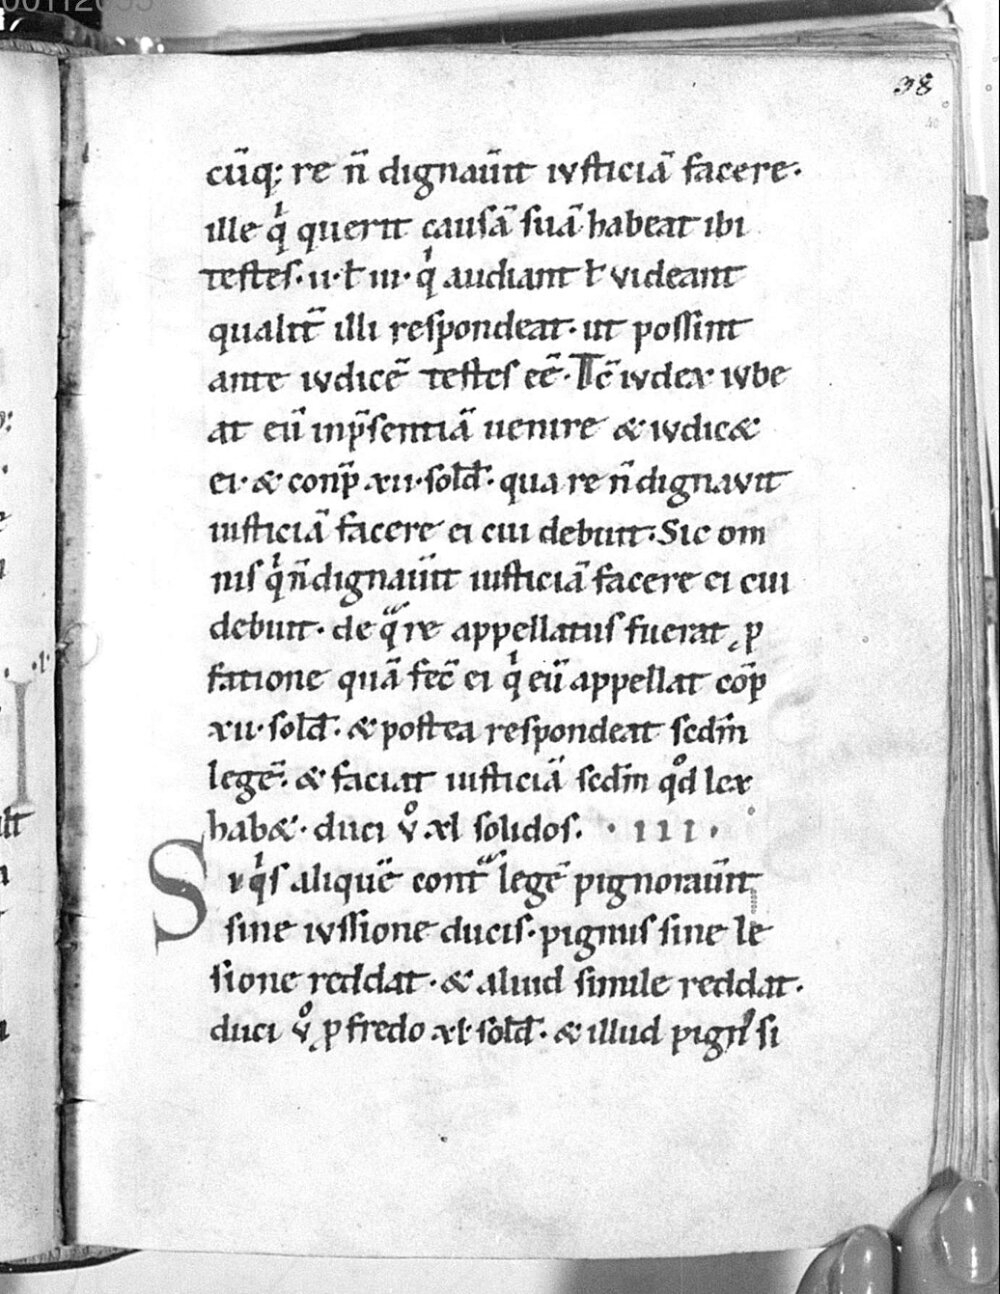 38
cū̄q; re n̄ dignaūit iusticiā facere·
ille qͥ querit causā suā habeat ibi
testes· ii· ł iii· qͥ audiant ł videant
qualit̄ illi respondeat· ut possint
ante iudicē testes ee̅· Tc̄ iudex iube
at eū inp̄sentiā uenire & iudic&
ei· & conp̄ xii· sold̄· qua re n̄ dignavit
iusticiā facere ei cui debuit· Sic om
nis qͥ n̄ dignaūit iusticiā facere ei cui
debuit· de qᵃ re appellatus fuerat, p
fatione quā fec̄ ei qͥ eū appellat cōp̄
xii· sold̄· & postea respondeat scdm̄
legē· & faciat iusticiā scdm̄ qͦd lex
hab&· duci vͦ xl solidos· · III ·
Si qͥs aliquē contᵃ legē pignoraūit
sine iussione ducis· pignus sine le
sione reddat· & aliud simile reddat·
duci vͦ p fredo xl· sold̄· & illud pign᾽ si